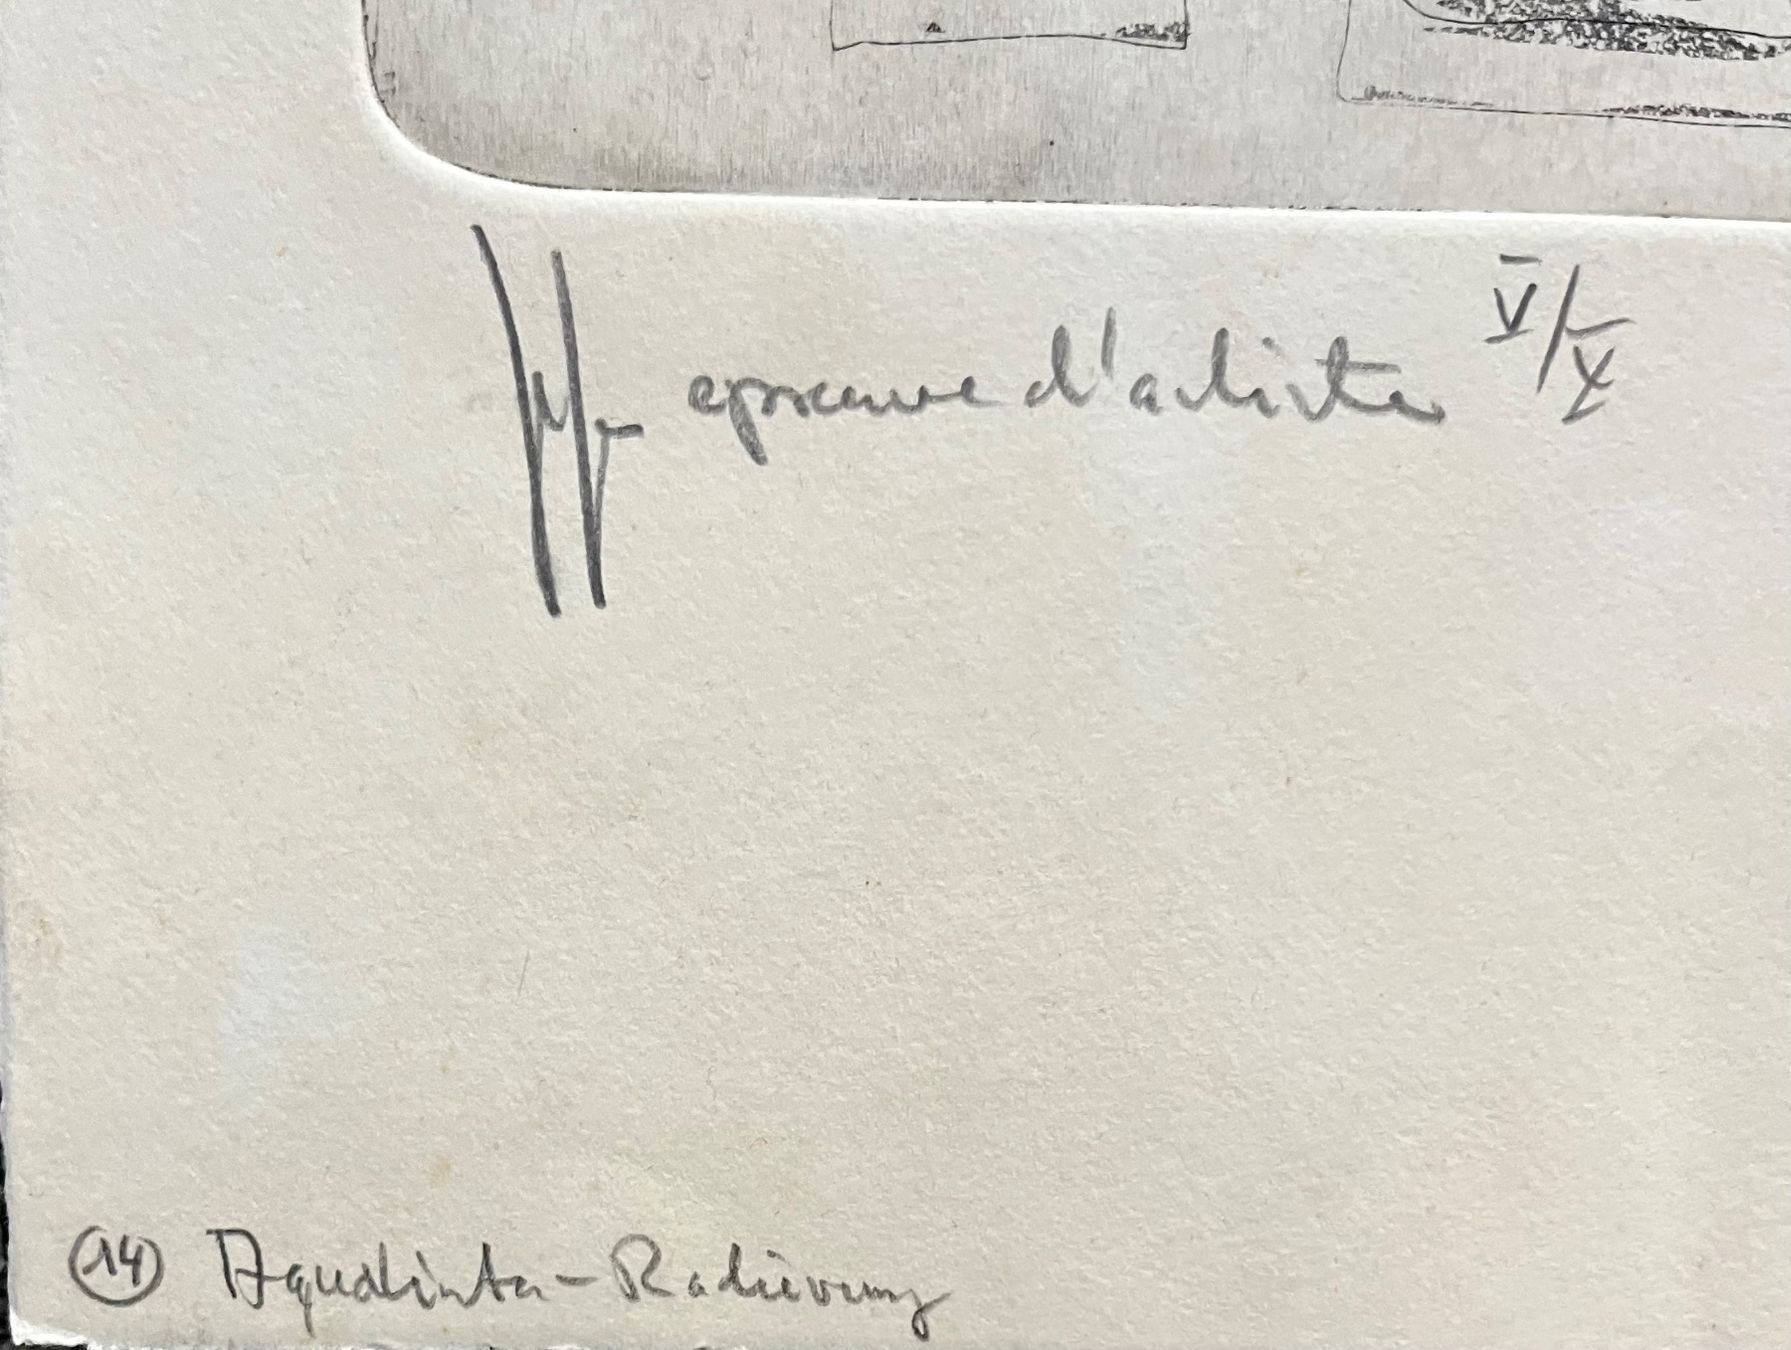 epreuve d'artiste V/X
14 Aquatinta-Radierung